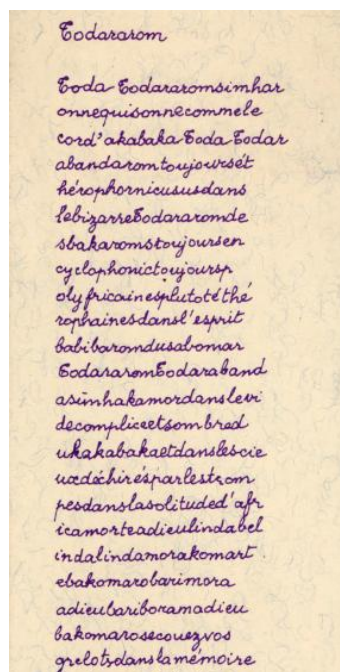 Todararom
Toda Todararomsimhar
onnequisonnecommele
cord'akabaka Toda Todar
abandaromtoujourset
hérophornicususdans
lebizarreTodararomde
sbakaromstoujoursen
cyclophonictoujoursp
olyfricainesplutotéthé
rophainesdansl'esprit
babibaromdusabomar
TodararomTodaraband
asimhakamordanslevi
decompliceetsombred
ukakabakaetdanslescie
uxdéchirésparlestrom
pesdanslasolituded'afr
icamorteadieulindabel
indalindamorakomart
ebakomarobarimora
adieubariboramadieu
bakomarosecouezvos
grelotsdanslamémoire